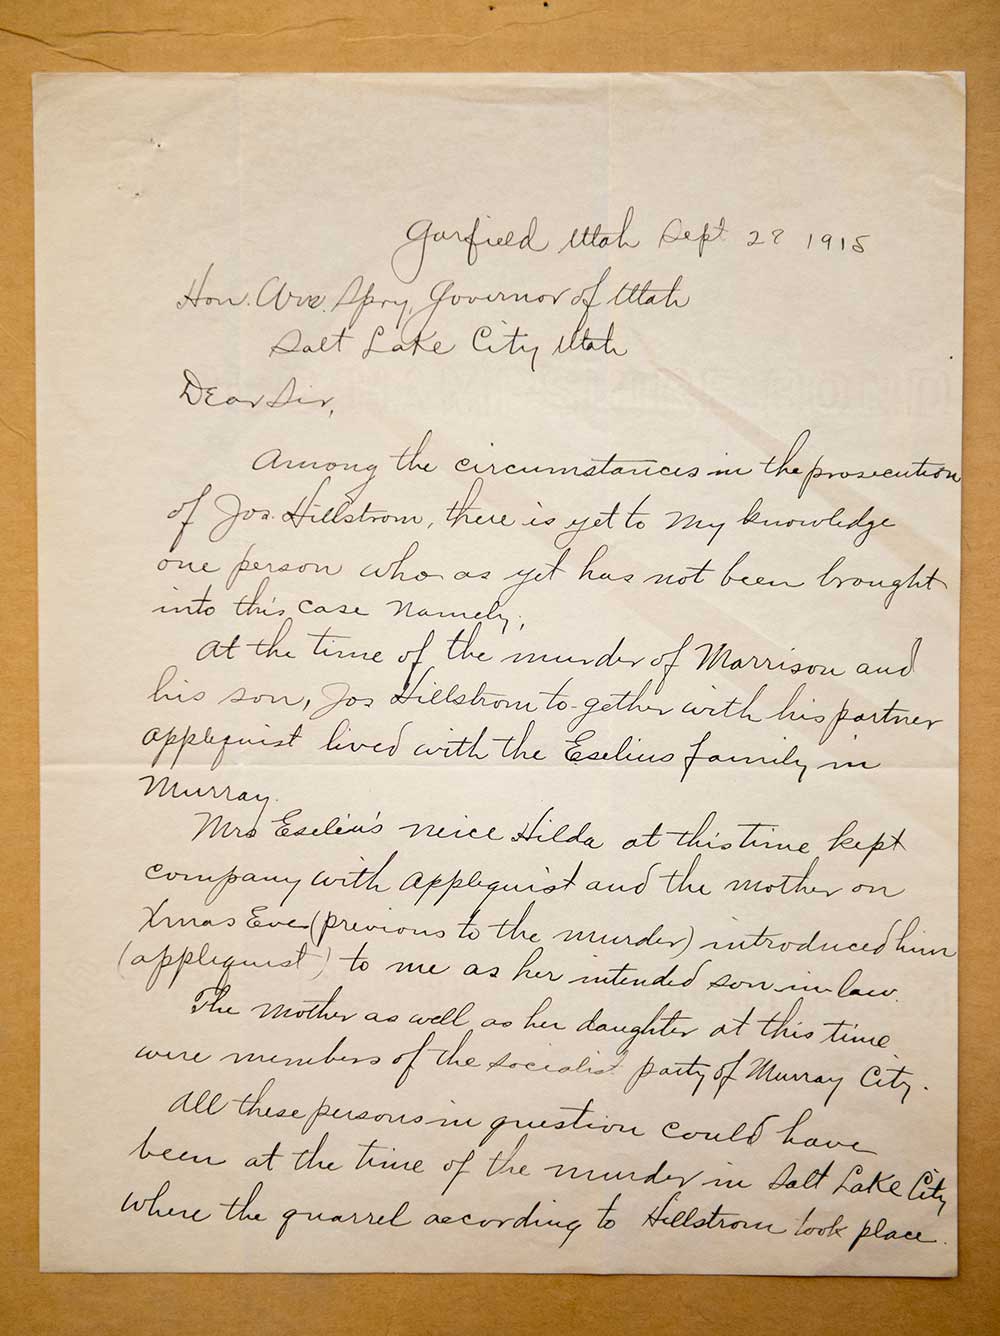 Garfield Utah Sept 28 1915
Hon. Wm. Spry, Governor of Utah
Salt Lake City Utah
Dear Sir,
Among the circumstances in the prosecution
of Jos. Hillstrom, there is yet to my knowledge
one person who as yet has not been brought
into this case namely;
At the time of the murder of Marrison and
his son, Jos Hillstrom to-gether with his partner
Applequist lived with the Eselius family in
Murray.
Mrs Eselius's neice Hilda at this time kept
company with Applequist and the mother on
Xmas Eve (previous to the murder) introduced him
(Applequist) to me as her intended son-in-law.
The mother as well as her daughter at this time
were members of the socialist party of Murray City.
All these persons in question could have
been at the time of the murder in Salt Lake City
where the quarrel according to Hillstrom took place.